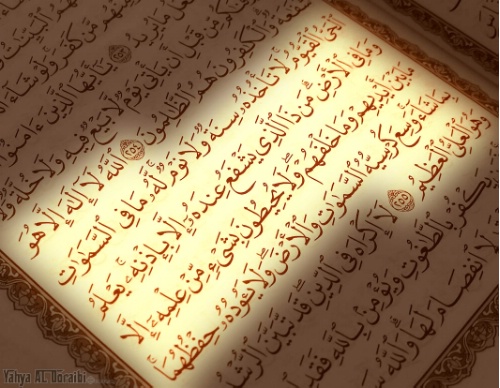 مِّن كَفَرَ وَلَوْ شَاءَ
يَفْعَلُ مَا يُرِيدُ ٢٥٣ يَٰٓأَيُّهَا ٱلَّذِينَ ءَامَنُوٓا۟
مِّن قَبْلِ أَن يَأْتِىَ يَوْمٌ لَّا بَيْعٌ فِيهِ وَلَا خُلَّةٌ وَلَا
وَٱلْكَٰفِرُونَ هُمُ ٱلظَّٰلِمُونَ ٢٥٤ ٱللَّهُ لَآ إِلَٰهَ إِلَّا هُوَ
ٱلْحَىُّ ٱلْقَيُّومُ لَا تَأْخُذُهُۥ سِنَةٌ وَلَا نَوْمٌ لَّهُۥ مَا فِى ٱلسَّمَٰوَٰتِ
وَمَا فِى ٱلْأَرْضِ مَن ذَا ٱلَّذِى يَشْفَعُ عِندَهُۥٓ إِلَّا بِإِذْنِهِۦ يَعْلَمُ
مَا بَيْنَ أَيْدِيهِمْ وَمَا خَلْفَهُمْ وَلَا يُحِيطُونَ بِشَىْءٍ مِّنْ عِلْمِهِۦٓ إِلَّا
بِمَا شَآءَ وَسِعَ كُرْسِيُّهُ ٱلسَّمَٰوَٰتِ وَٱلْأَرْضَ وَلَا يَـُٔودُهُۥ حِفْظُهُمَا
وَهُوَ ٱلْعَلِىُّ ٱلْعَظِيمُ ٢٥٥ لَآ إِكْرَاهَ فِى ٱلدِّينِ قَد تَّبَيَّنَ ٱلرُّشْدُ
يَكْفُرْ بِٱلطَّٰغُوتِ وَيُؤْمِنۢ بِٱللَّهِ فَقَدِ
لَا ٱنفِصَامَ لَهَا وَٱللَّهُ
Yahya AL-Doraibi